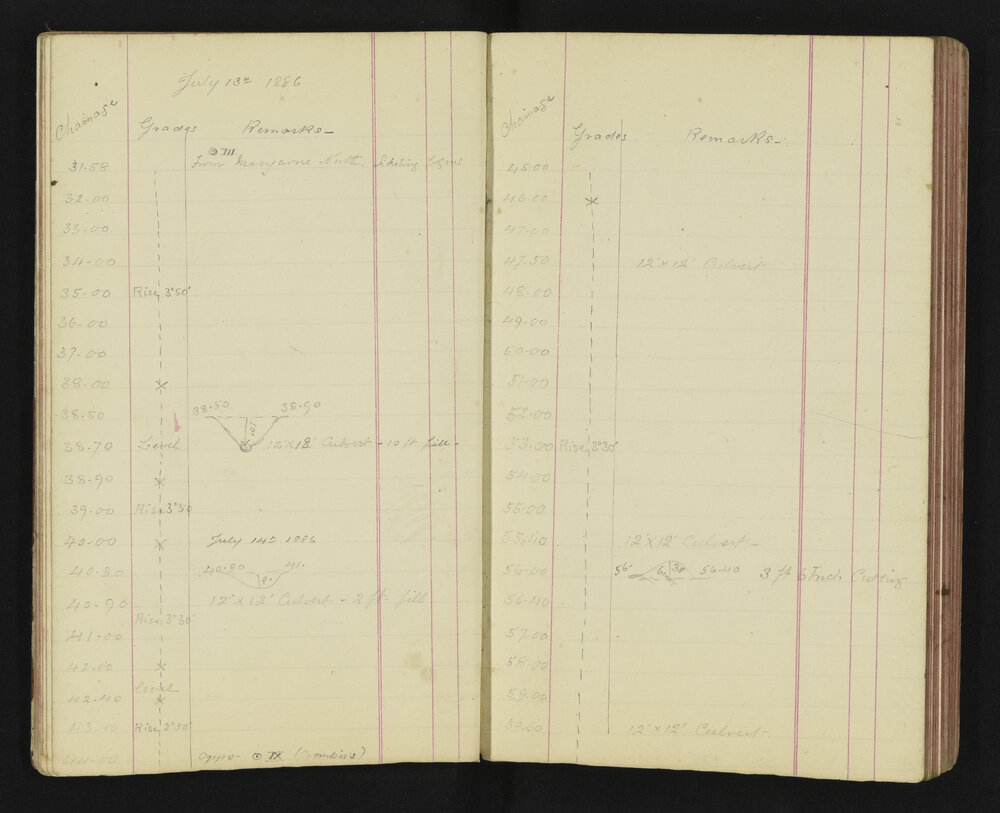 July 13th 1886
Chainage Grades Remarks-
⊙ III
31.58 From Mangaone North. Sidling begins
32.00
33-00
34-00
35-00 Rise 3°50'
36.00
37.00
38-00 ×
38.50 38.50 38.90
10'
38.70 Level 12'×18' Culvert - 10 ft fill-
38-90 ×
39-00 Rise 3°50
40-00 × July 14th 1886
40.80 40.80 41.
8'
40.90 12'×12' Culvert - 2 ft. fill
Rise 3°30'
41-00
42.00 ×
Level
42-40 ×
43-00 Rise 2°50'
44-00 oppo- ⊙ IX (Crombies)
Chainage Grades Remarks-
45.00
46.00 ×
47-00
47.50 12'×12' Culvert
48-00
49-00
50-00
51-00
52-00
53.00 Rise 3°30'
54-00
55-00
55.40 12'×12' Culvert-
56-00 56' 56-40 3 ft 6 Inch Cutting
56-40
57.00
58-00
59-00
59.60 12'×12'-Culvert-